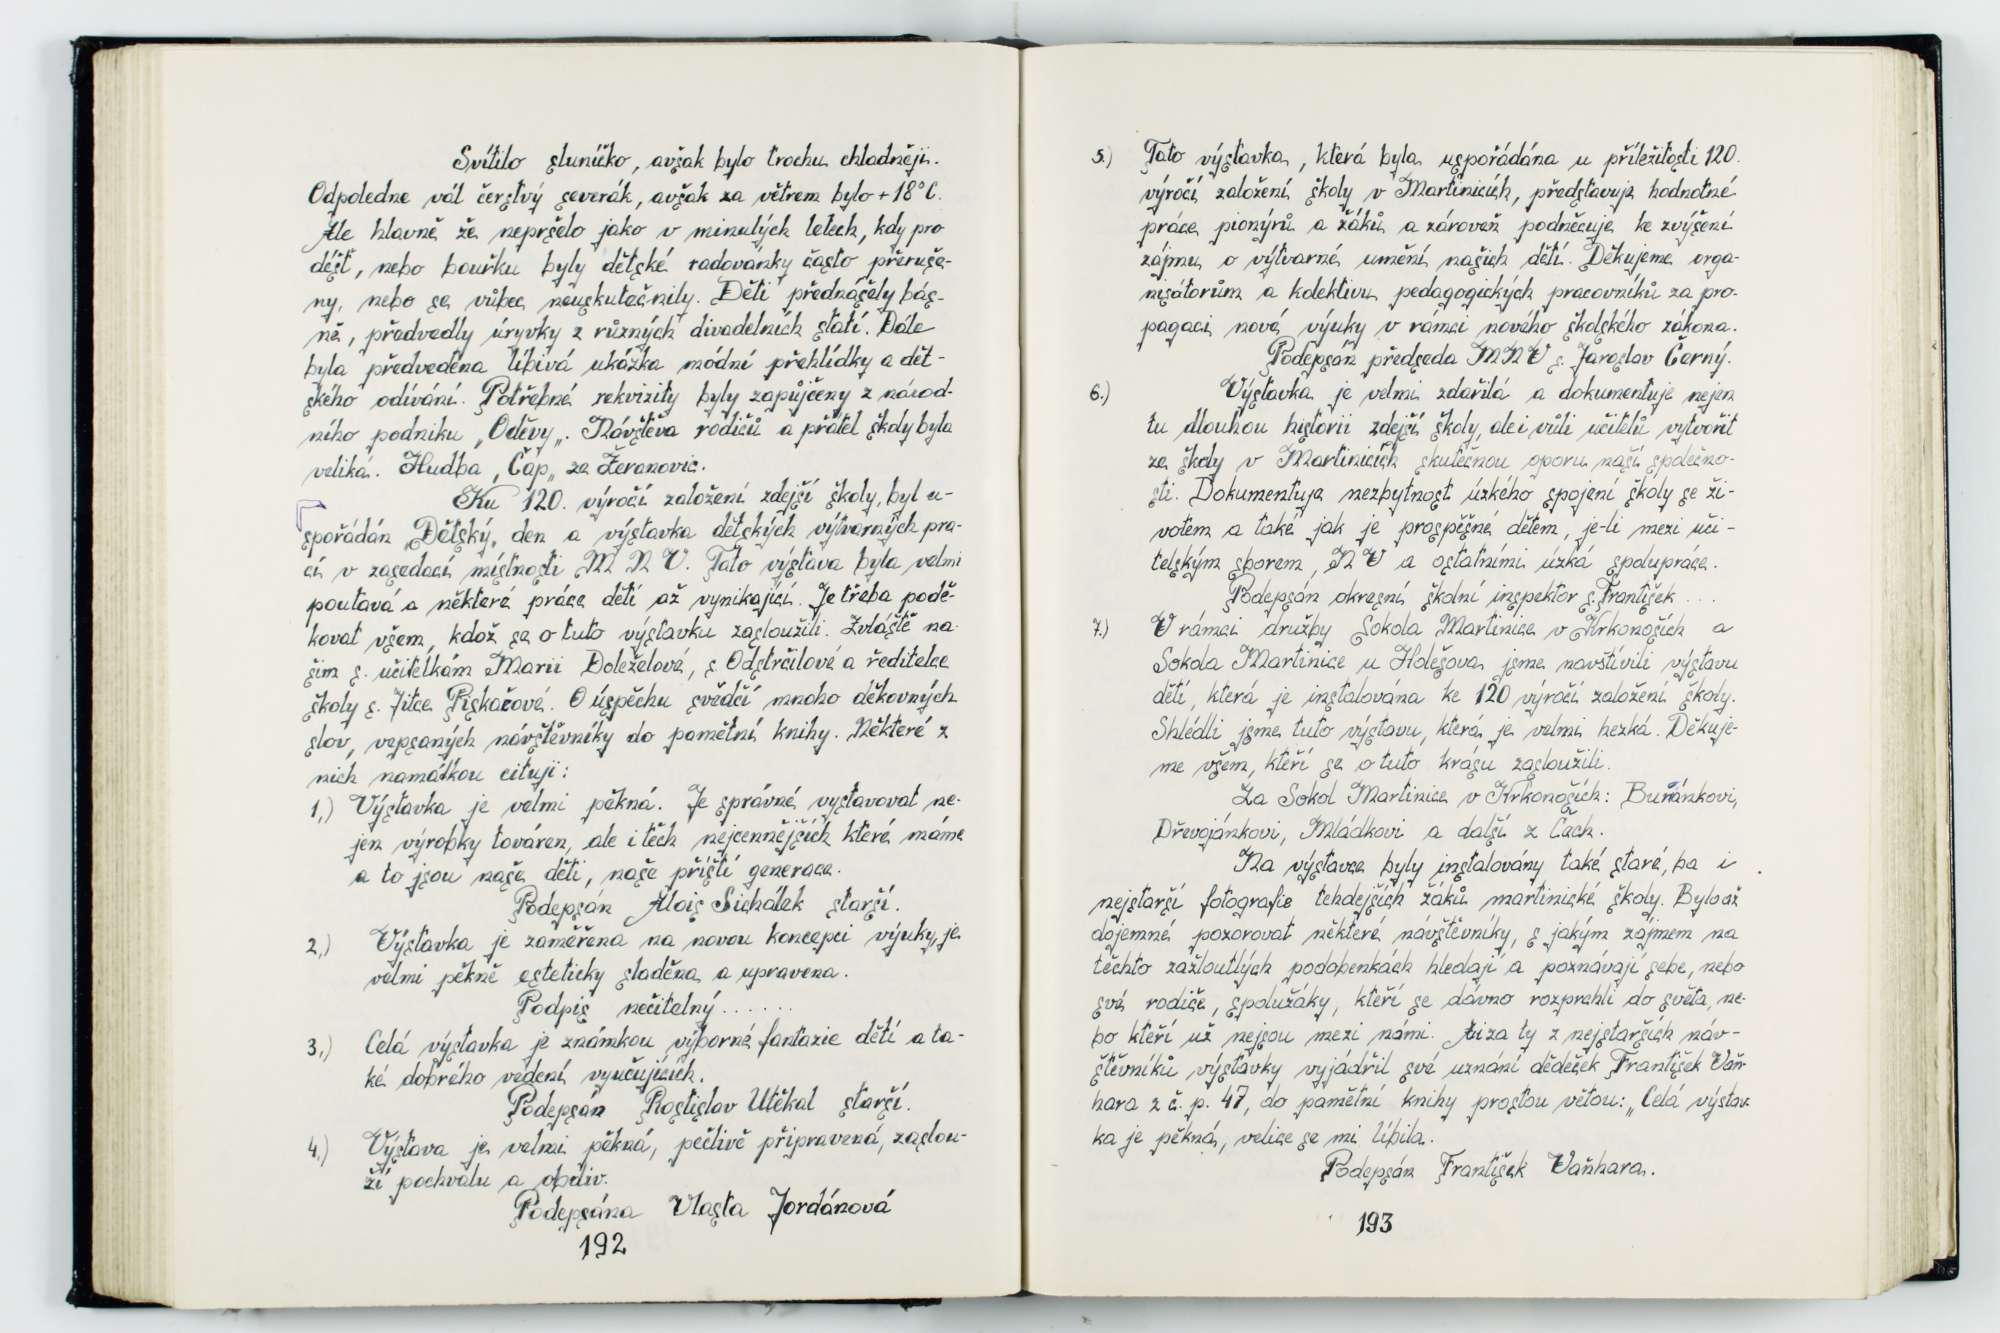 Svítilo sluníčko, avšak bylo trochu chladněji.
Odpoledne vál čerstvý severák, avšak za větrem bylo +18°C.
Ale hlavně že nepršelo jako v minulých letech, kdy pro
déšť, nebo bouřku byly dětské radovánky často přeruše-
ny, nebo se vůbec neuskutečnily. Děti přednášely bás-
ně, předvedly úryvky z různých divadelních statí. Dále
byla předvedena líbivá ukázka módní přehlídky a dět-
ského odívání. Potřebné rekvizity byly zapůjčeny z národ-
ního podniku „Oděvy„. Návštěva rodičů a přátel školy byla
veliká. Hudba „Čáp„ ze Žeranovic.
Ku 120. výročí založení zdejší školy, byl u-
spořádán „Dětský„ den a výstavka dětských výtvarných pra-
cí v zasedací místnosti M N V. Tato výstava byla velmi
poutavá a některé práce dětí až vynikající. Je třeba podě-
kovat všem, kdož se o tuto výstavku zasloužili. Zvláště na-
šim s. učitelkám Marii Doleželové, s Odstrčilové a ředitelce
školy s. Jitce Piskačové. O úspěchu svědčí mnoho děkovných
slov, vepsaných návštěvníky do pamětní knihy. Některé z
nich namátkou cituji:
1,) Výstavka je velmi pěkná. Je správné vystavovat ne-
jen výrobky továren, ale i těch nejcennějších které máme
a to jsou naše děti, naše příští generace.
Podepsán Alois Sichálek starší.
2,) Výstavka je zaměřena na novou koncepci výuky, je
velmi pěkně esteticky sladěna a upravena.
Podpis nečitelný......
3,) Celá výstavka je známkou výborné fantazie dětí a ta-
ké dobrého vedení vyučujících.
Podepsán Rostislav Utěkal starší.
4,) Výstava je velmi pěkná, pečlivě připravená, zaslou-
ží pochvalu a obdiv.
Podepsána Vlasta Jordánová
192
5.) Tato výstavka, která byla uspořádána u příležitosti 120.
výročí založení školy v Martinicích, představuje hodnotné
práce pionýrů a žáků a zároveň podněcuje ke zvýšení
zájmu o výtvarné umění našich dětí. Děkujeme orga-
nisátorům a kolektivu pedagogických pracovníků za pro-
pagaci nové výuky v rámci nového školského zákona.
Podepsán předseda MNV s. Jaroslav Černý.
6.) Výstavka je velmi zdařilá a dokumentuje nejen
tu dlouhou historii zdejší školy, ale i vůli učitelů vytvořit
ze školy v Martinicích skutečnou oporu naší společno-
sti. Dokumentuje nezbytnost úzkého spojení školy se ži-
votem a také jak je prospěšné dětem, je-li mezi uči-
telským sborem, NV a ostatními úzká spolupráce.
Podepsán okresní školní inspektor s. František...
7.) V rámci družby Sokola Martinice v Krkonoších a
Sokola Martinice u Holešova jsme navštívili výstavu
dětí, která je instalována ke 120 výročí založení školy.
Shlédli jsme tuto výstavu, která je velmi hezká. Děkuje-
me všem, kteří se o tuto krásu zasloužili.
Za Sokol Martinice v Krkonoších: Buriánkovi,
Dřevojánkovi, Mládkovi a další z Čech.
Na výstavce byly instalovány také staré, ba i
nejstarší fotografie tehdejších žáků martinické školy. Bylo až
dojemné pozorovat některé návštěvníky, s jakým zájmem na
těchto zažloutlých podobenkách hledají a poznávají sebe, nebo
své rodiče, spolužáky, kteří se dávno rozprchli do světa, ne-
bo kteří už nejsou mezi námi. Ai za ty z nejstarších náv-
štěvníků výstavky vyjádřil své uznání dědeček František Vaň-
hara z č. p. 47, do pamětní knihy prostou větou: „Celá výstav-
ka je pěkná, velice se mi líbila.
Podepsán František Vaňhara.
193